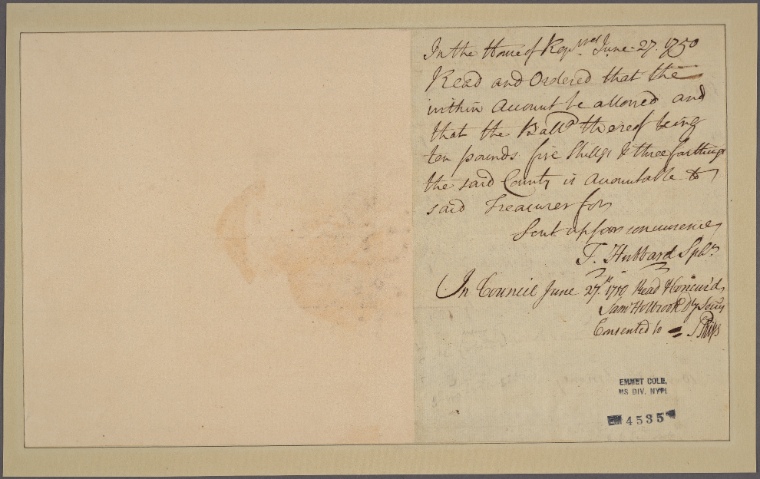 In the House of Rep.ves June 27. 1750
Read and Ordered that the
within Account be allowed and
that the Ball.ce thereof being
ten pounds five Shillgs & three farthings
the said County is Accountable to
said Treasurer for
Sent up for concurrence
T. Hubbard Spkr.
In Council June 27.th 1750 Read & Concur'd
Sam.l Holbrook Dty Secry
Consented to S Phips
EMMET COLL.
MS DIV. NYPL
4535